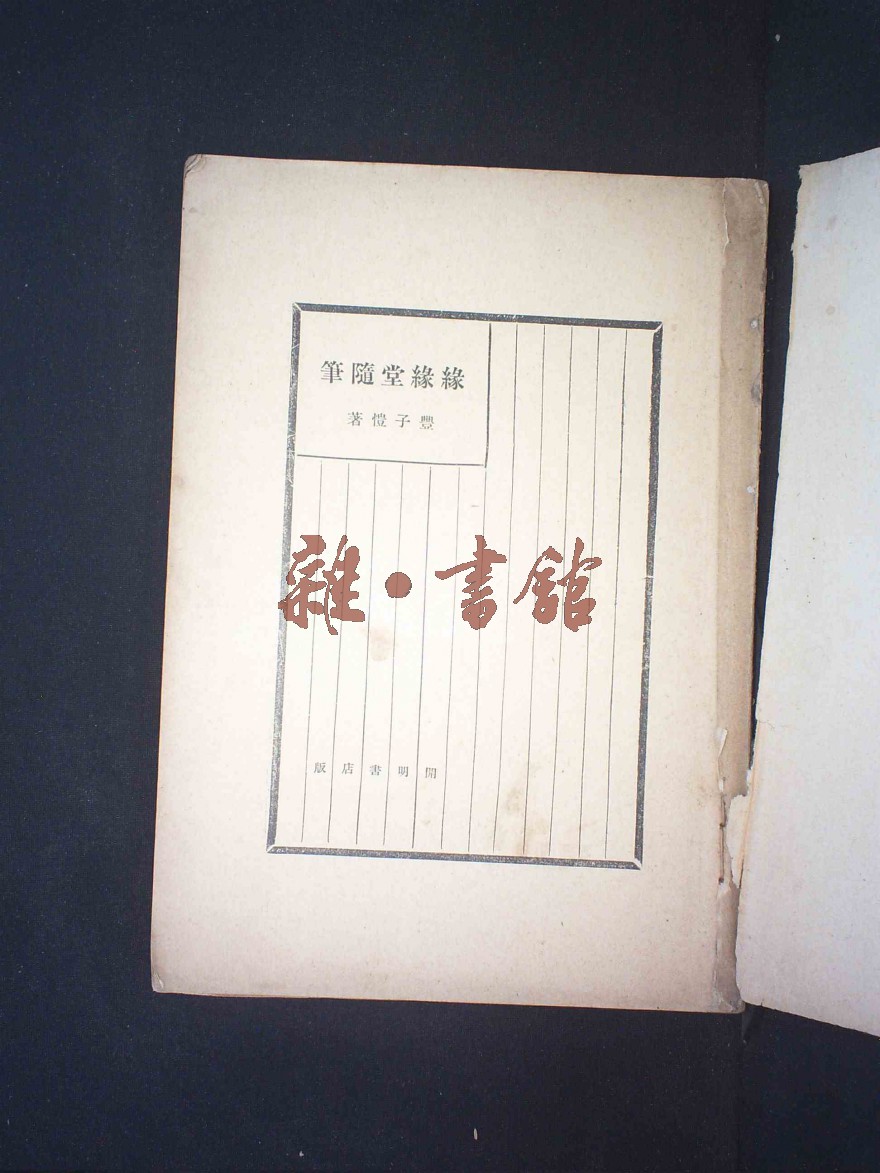 緣緣堂隨筆
豐子愷著
雜·書館
開明書店版